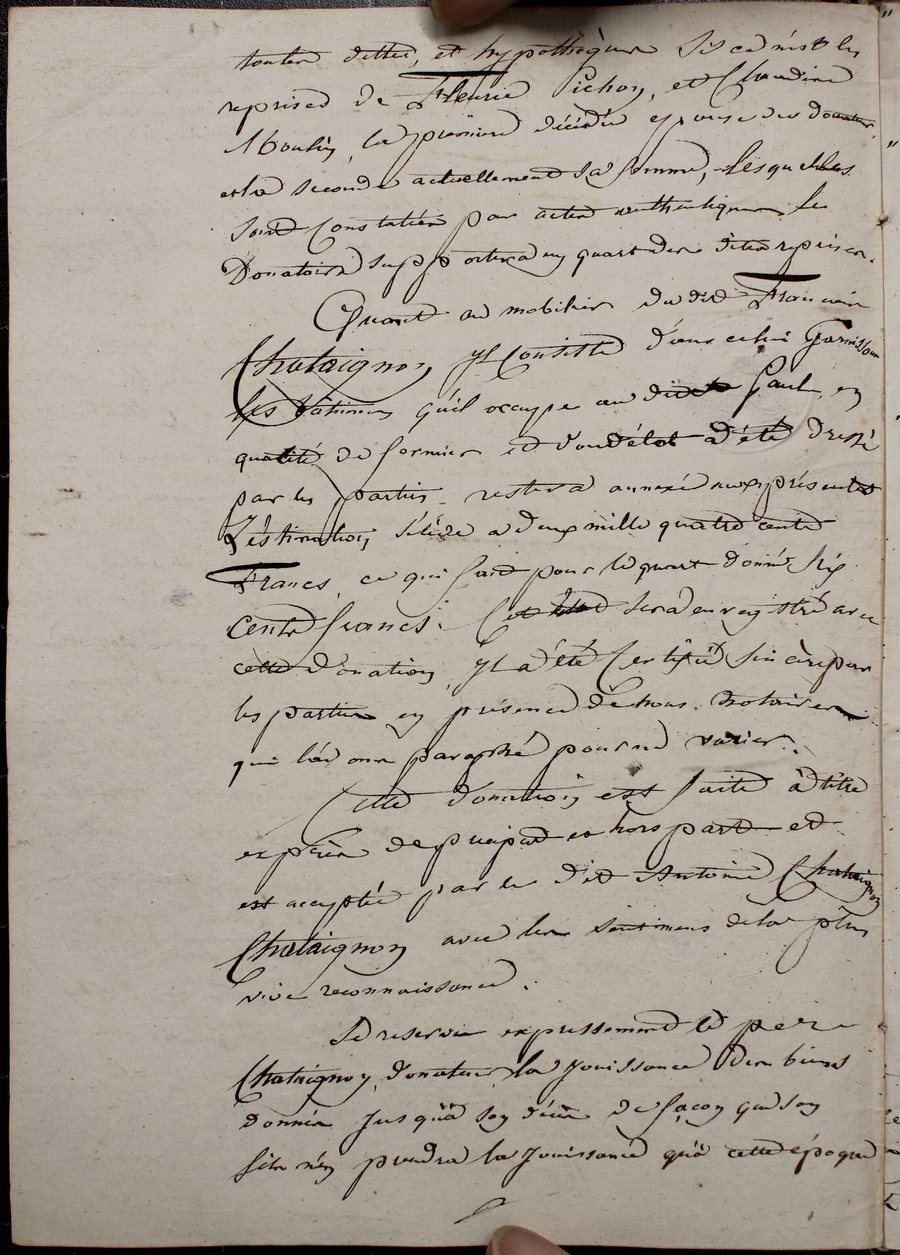 toutes dettes, et hypothèques si ce n'est les
reprises de Fleurie Pichon, et Claudine
Moulin, la premiere décédée epouse du donateur,
et la seconde actuellement sa femme, lesquelles
sont constatées par actes authentiques, le
Donataire supportera un quart des dites reprises.
Quant au mobilier du dit François
Chataignon, il consiste dans celui garnissant
les bâtimens qu'il occupe au dit Gault, en
qualité de fermier et dont l'état a été dressé
par les parties, restera annexé aux présentes
L'éstimation s'élève a deux mille quatre cents
Francs, ce qui fait pour le quart donné Six
cents francs. Cet état sera enregistré avec
cette donation, il a été Certifié sincère par
les parties en présence de nous Notaires
qui l'avons paraphé pour ne varier.
Cette donation est faite à titre
exprès de préciput et hors part et
est acceptée par le dit Antoine Chataignon
Chataignon avec les sentimens de la plus
vive reconnaissance.
Se reserve expressement le pere
Chataignon, donateur, la Jouissance des biens
donnés jusqu'à son décès de façon que son
fils n'en prendra la Jouissance qu'à cette époque